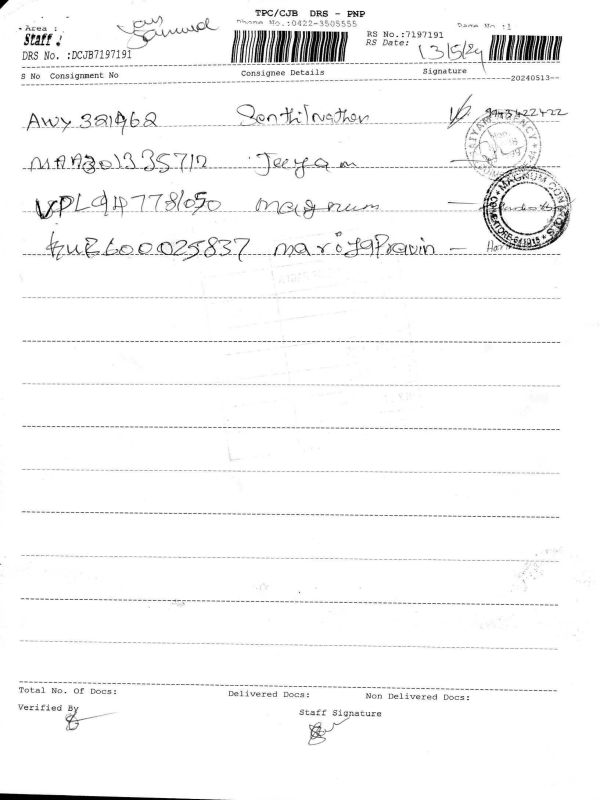 TPC/CJB DRS - PNP
Phone No.:0422-3505555
Page No :1
Area :
Samuel
Staff :
DRS No. :DCJB7197191
RS No.:7197191
RS Date: 13/5/24
S No Consignment No Consignee Details Signature
--20240513--
AWY 321962 Senthilnathan 9943422422
MAA301335712 Jeeyam
VPL947781050 magnum
KUE600025837 mariya Pravin
MAGNUM
COIMBATORE-641018
Total No. Of Docs: Delivered Docs: Non Delivered Docs:
Verified By
Staff Signature